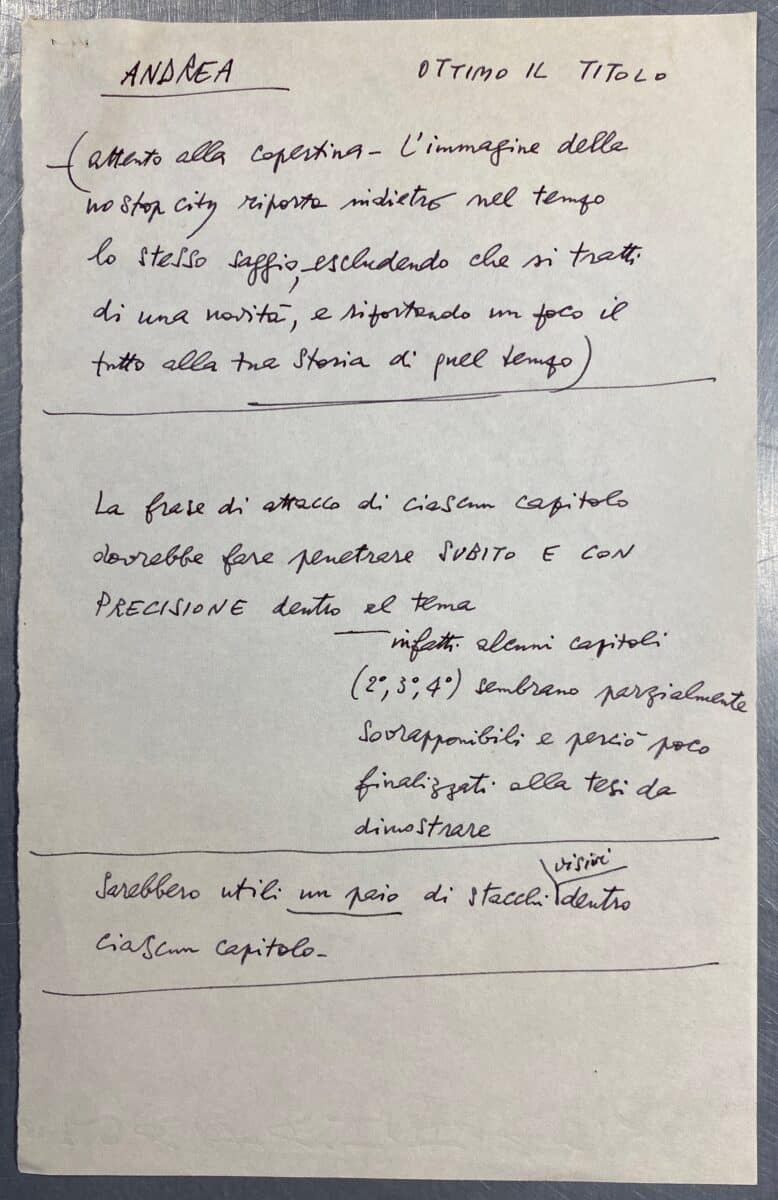 ANDREA OTTIMO IL TITOLO
(attento alla copertina - L'immagine della
no stop city riporta indietro nel tempo
lo stesso saggio, escludendo che si tratti
di una novità, e riportando un poco il
tutto alla tua storia di quel tempo)
La frase di attacco di ciascun capitolo
dovrebbe fare penetrare SUBITO E CON
PRECISIONE dentro al tema
infatti alcuni capitoli
(2°, 3°, 4°) sembrano parzialmente
sovrapponibili e perciò poco
finalizzati alla tesi da
dimostrare
visivi
Sarebbero utili un paio di stacchi dentro
ciascun capitolo -